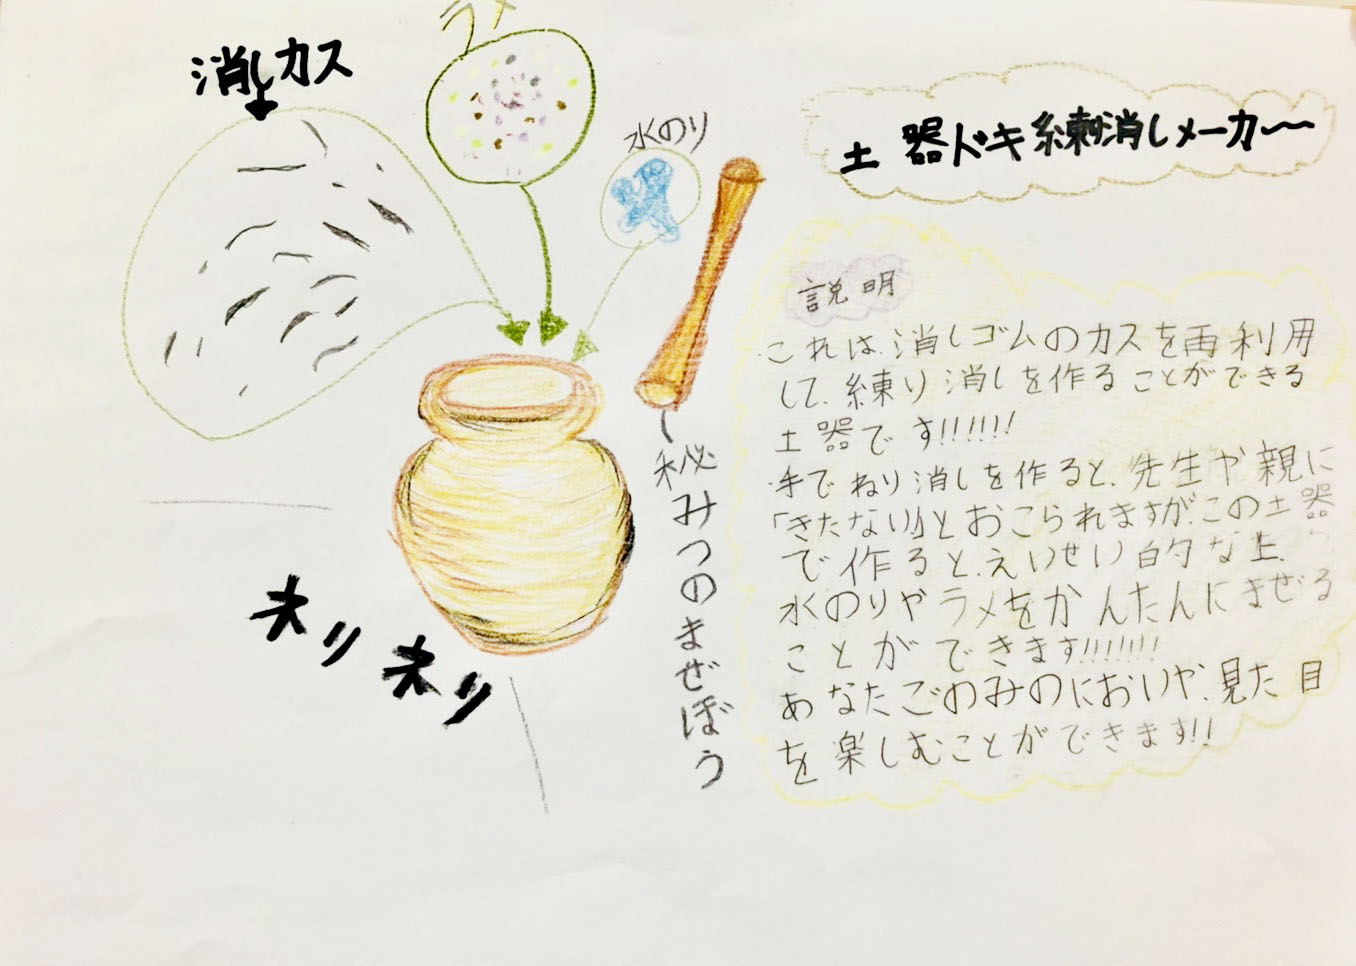 ラメ
消しカス
水のり
土器ドキ練消しメーカ〜
説明
これは、消しゴムのカスを再利用
して、練り消しを作ることができる
土器です!!!!!!
手でねり消しを作ると、先生や親に
「きたない!」とおこられますが、この土器
で作ると、えいせい的な上、
水のりやラメをかんたんにまぜる
ことができます!!!!!!!
あなたごのみのにおいや、見た目
を楽しむことができます!!
秘みつのまぜぼう
ネリネリ